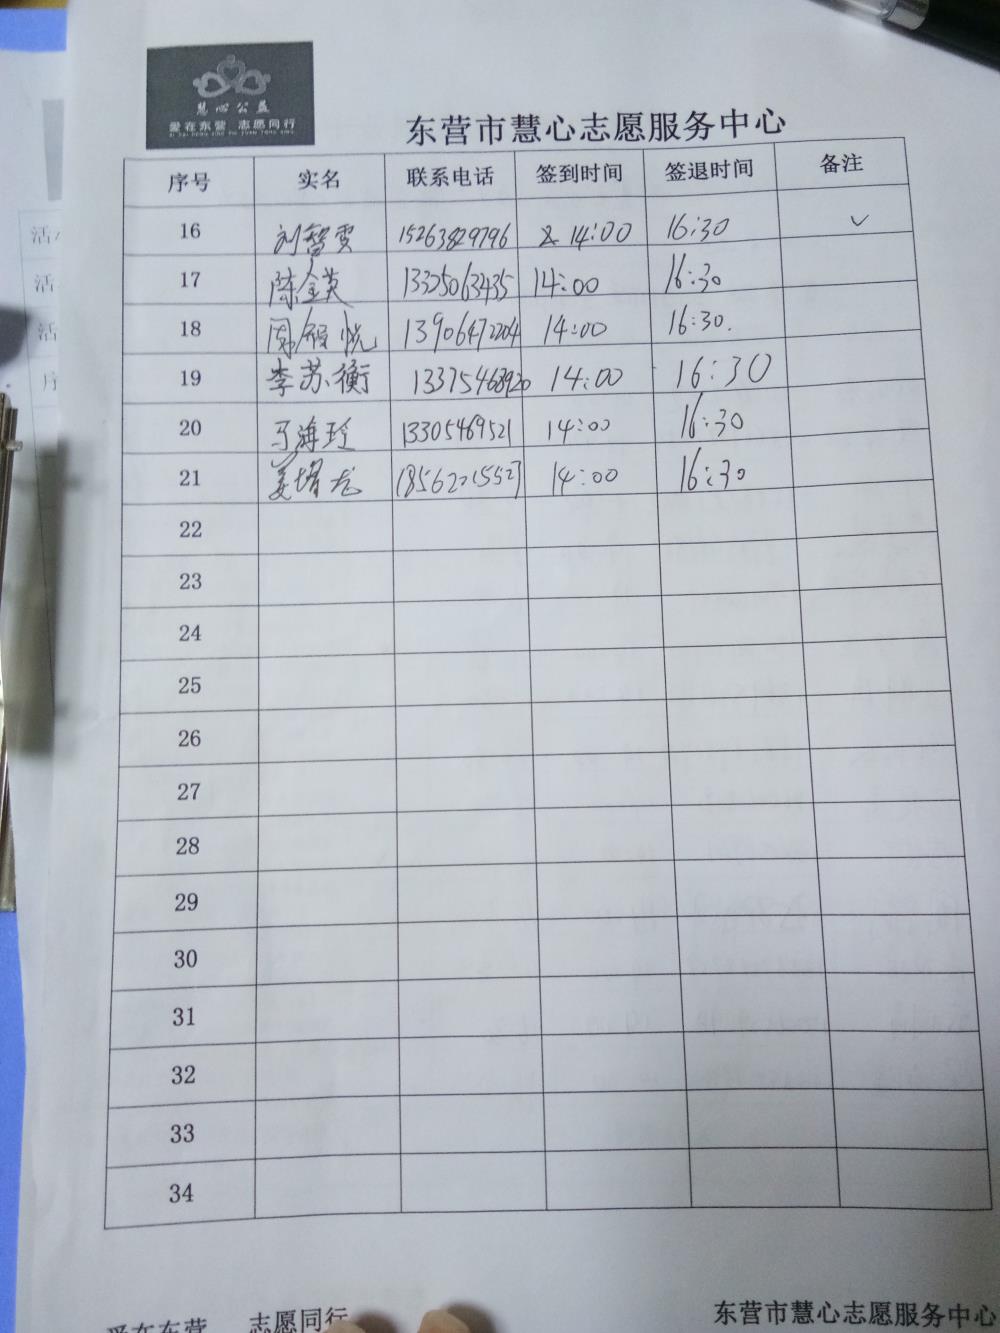 慧心公益
爱在东营 志愿同行
东营市慧心志愿服务中心
序号 实名 联系电话 签到时间 签退时间 备注
16 刘智雯 15263829796 14:00 16:30 ✓
17 陈金英 13325063435 14:00 16:30
18 13906472204 14:00 16:30.
19 李苏衡 13375468920 14:00 16:30
20 马海玲 13305469521 14:00 16:30
21 姜增龙 18562015523 14:00 16:30
22
23
24
25
26
27
28
29
30
31
32
33
34
爱在东营 志愿同行 东营市慧心志愿服务中心